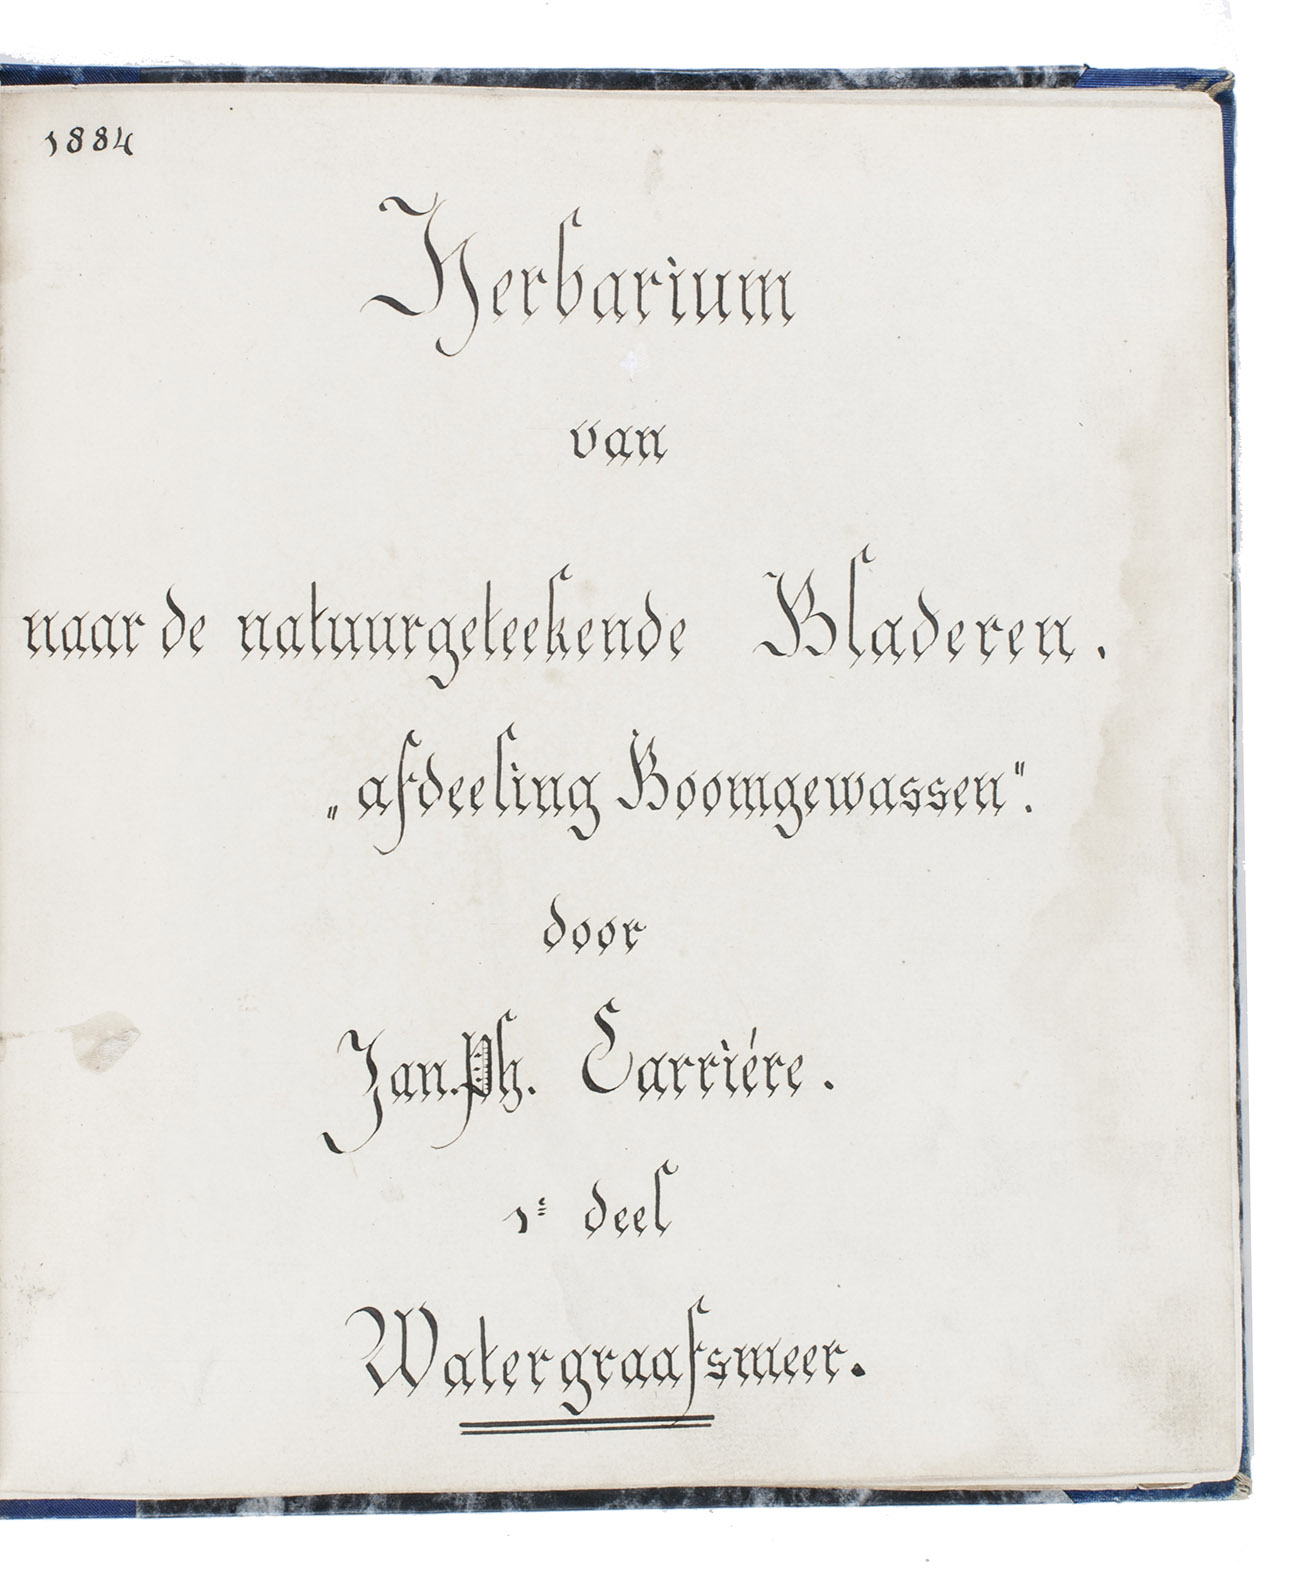 1884
Herbarium
van
naar de natuurgeteekende Bladeren.
„afdeeling Boomgewassen".
door
Jan.Ph. Carriére.
1e deel
Watergraafsmeer.